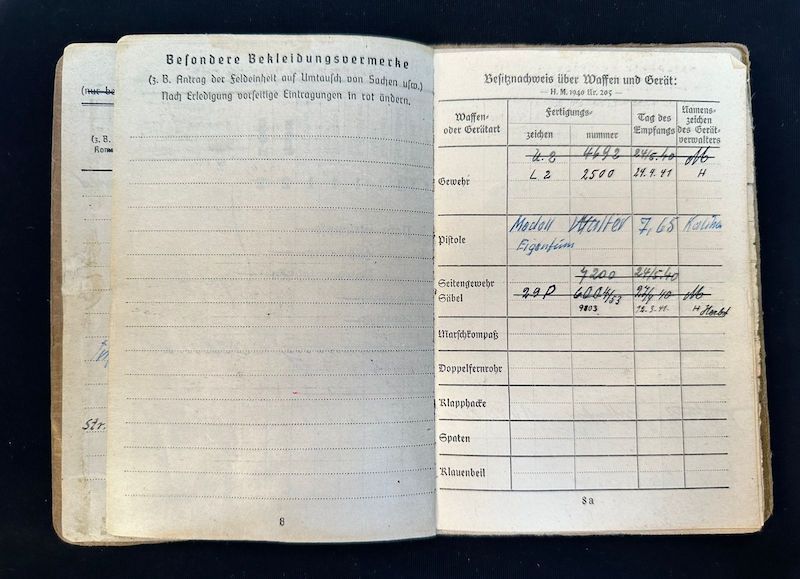 (nur be
(z. B.
Kom
Str.
Besondere Bekleidungsvermerke
(z. B. Antrag der Feldeinheit auf Umtausch von Sachen usw.)
Nach Erledigung vorseitige Eintragungen in rot ändern.
8
Besitznachweis über Waffen und Gerät:
— H. M. 1940 Nr. 205 —
Waffen- oder Gerätart
Fertigungs-
zeichen
nummer
Tag des Empfangs
Namens- zeichen des Gerät- verwalters
Gewehr
4692 24/5.40 M
L.2 2500 29.9.41 H
Pistole
Modell Walter 7,65 Kaliber
Eigentum
Seitengewehr
Säbel
7200 24/5.40
29P 6004/53 M
9803 12.3.41 H Herbst
Marschkompaß
Doppelfernrohr
Klapphacke
Spaten
Klauenbeil
8a